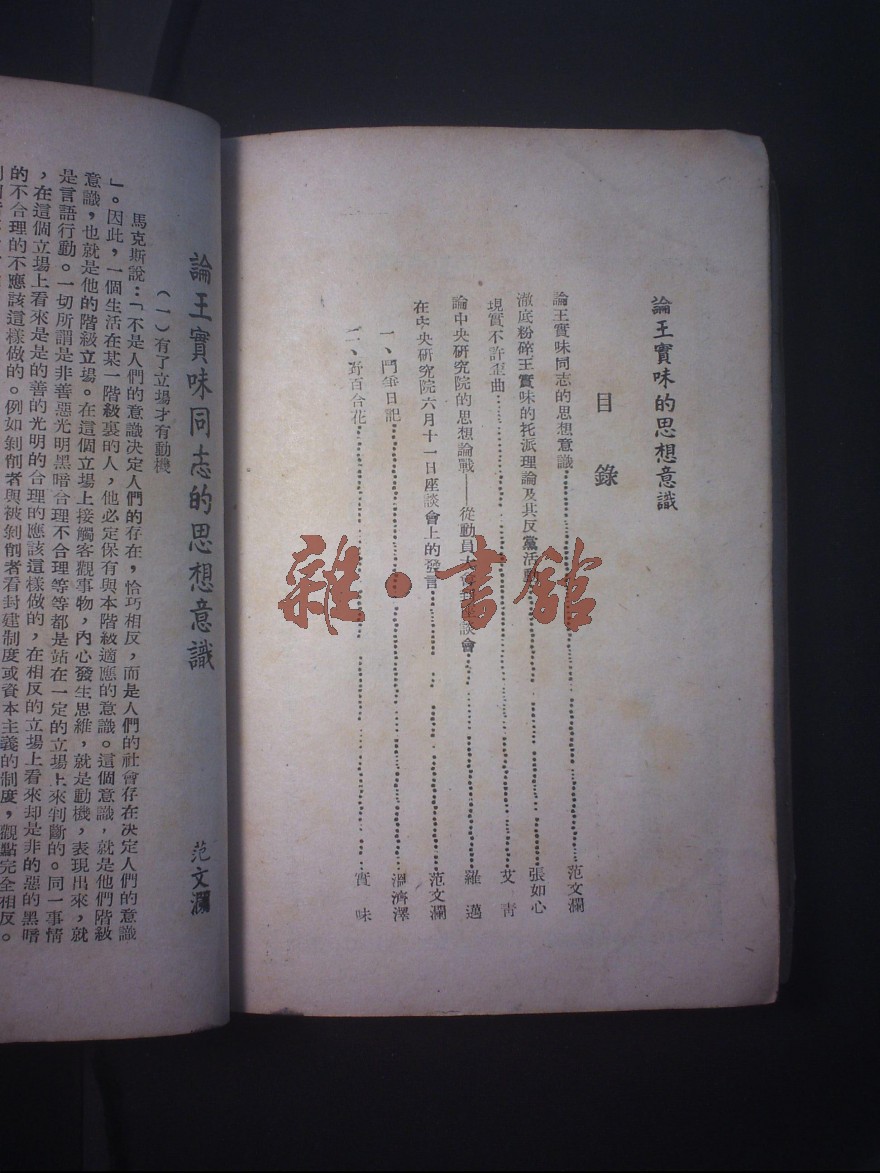 論王實味的思想意識
目錄
論王實味同志的思想意識……范文瀾
澈底粉碎王實味的托派理論及其反黨活動……張如心
現實不許歪曲……艾青
論中央研究院的思想論戰——從動員大會到座談會……羅邁
在中央研究院六月十一日座談會上的發言……范文瀾
一、鬥爭日記……溫濟澤
二、野百合花……實味
雜·書館
論王實味同志的思想意識 范文瀾
(一)有了立場才有動機
馬克斯說:「不是人們的意識決定人們的存在,恰巧相反,而是人們的社會存在決定人們的意識
」。因此,一個生活在某一階級裏的人,他必定保有與本階級適應的意識。這個意識,就是他們階級
意識,也就是他的階級立場。在這個立場上接觸客觀事物,內心發生思維,就是動機,表現出來,就
是言語行動。一切所謂是非善惡光明黑暗合理不合理等等都是站在一定的立場上來判斷的。同一事情
,在這個立場上看來是是的善的光明的合理的應該這樣做的,在相反的立場上看來却是非的惡的黑暗
的不合理的不應該這樣做的。例如剝削者與被剝削者看封建制度或資本主義的制度,觀點完全相反。